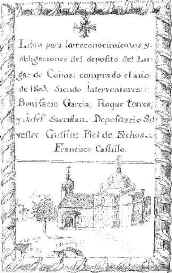 Libro para los reconocimientos y
obligaciones del deposito del Lu-
gar de Canos: comprado el año
de 1803. Siendo Interventores:
Bonifacio Garcia, Roque Torres,
y Josef Sacristan. Depositario Sil
vestre Guillen: Fiel de Fechos
Francisco Castillo.